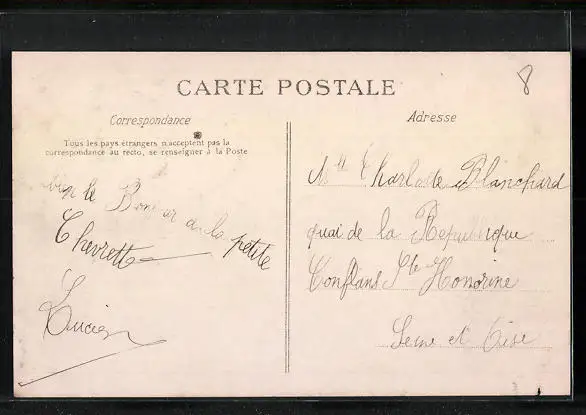 8
CARTE POSTALE
Correspondance
Tous les pays étrangers n'acceptent pas la
correspondance au recto, se renseigner à la Poste
le Bonjour de la petite
Chevrette
Lucien
Adresse
Mlle Charlotte Blanchard
quai de la République
Conflans Ste Honorine
Seine et Oise